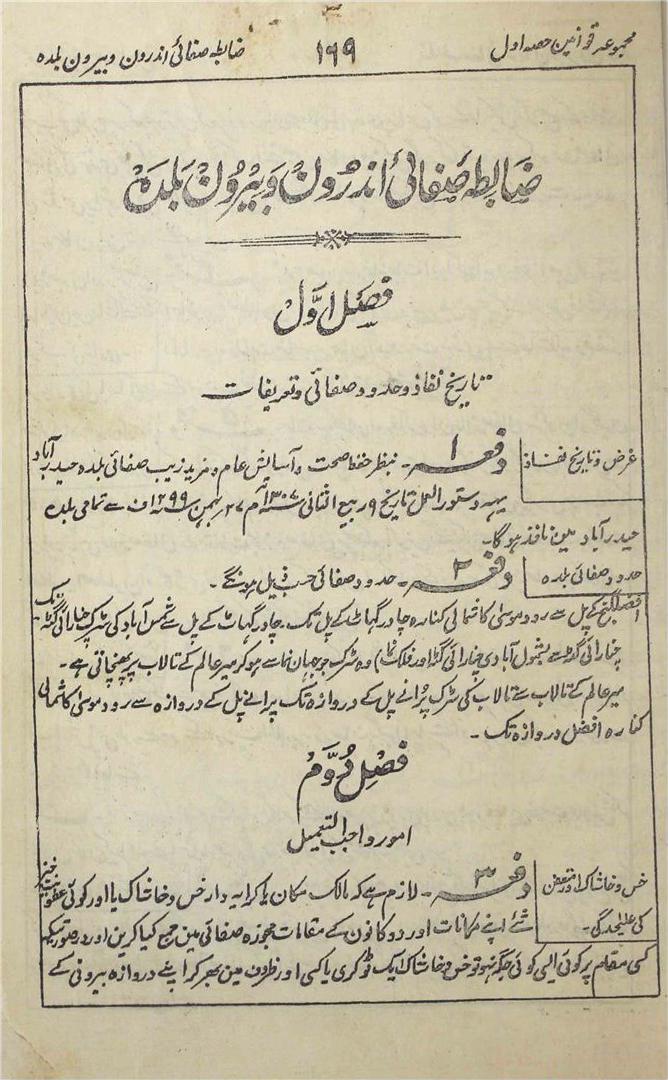 مجموعہ قوانین حصہ اول
۱۶۹
ضابطہ صفائی اندرون و بیرون بلدہ
ضابطہ صفائی اندرون و بیرون بلدہ
فصل اول
تاریخ نفاذ و حدود صفائی و تعریفات
غرض و تاریخ نفاذ
دفعہ ۱۔ بنظر حفظ صحت و آسایش عام و مزید زیب صفائی بلدہ حیدرآباد
یہہ دستور العمل تاریخ ۹ ربیع الثانی ۱۳۰۷ھ م ۲۷ بہمن ۱۲۹۹ف سے تمامی بلدہ
حیدرآباد مین نافذ ہوگا۔
حدود صفائی بلدہ
دفعہ ۲۔ حدود صفائی حسب ذیل ہونگے۔
افضل گنج کے پل سے رود موسیٰ کا شمالی کنارہ چادر گہاٹ کے پل تک۔ چادر گہاٹ کے پل سے شمس آباد کی سڑک چنارائی گٹہ تک۔
چنارائی گٹہ سے بشمول آبادی چنارائی گٹہ اور فلک نما) وہ سڑک جو جہان نما سے ہوکر میر عالم کے تالاب پر پہنچاتی ہے۔
میر عالم کے تالاب سے تالاب کی سڑک پرانے پل کے دروازہ تک پرانے پل کے دروازہ سے رود موسیٰ کا شمالی
کنارہ افضل دروازہ تک۔
فصل دوم
امور واجب التعمیل
خس و خاشاک اور متعفن
کی علیحدگی۔
دفعہ ۳۔ لازم ہے کہ مالک مکان یا کرایہ دار خس و خاشاک یا اور کوئی عفونت خیز
شئے اپنے مکانات اور دوکانون کے مقامات مجوزہ صفائی مین جمع کیا کرین اور درصورتیکہ
کسی مقام پر کوئی ایسی کوئی جگہ نہو تو خس و خاشاک ایک ٹوکری یا کسی اور ظروف مین بھر کر اپنے دروازہ بیرونی کے